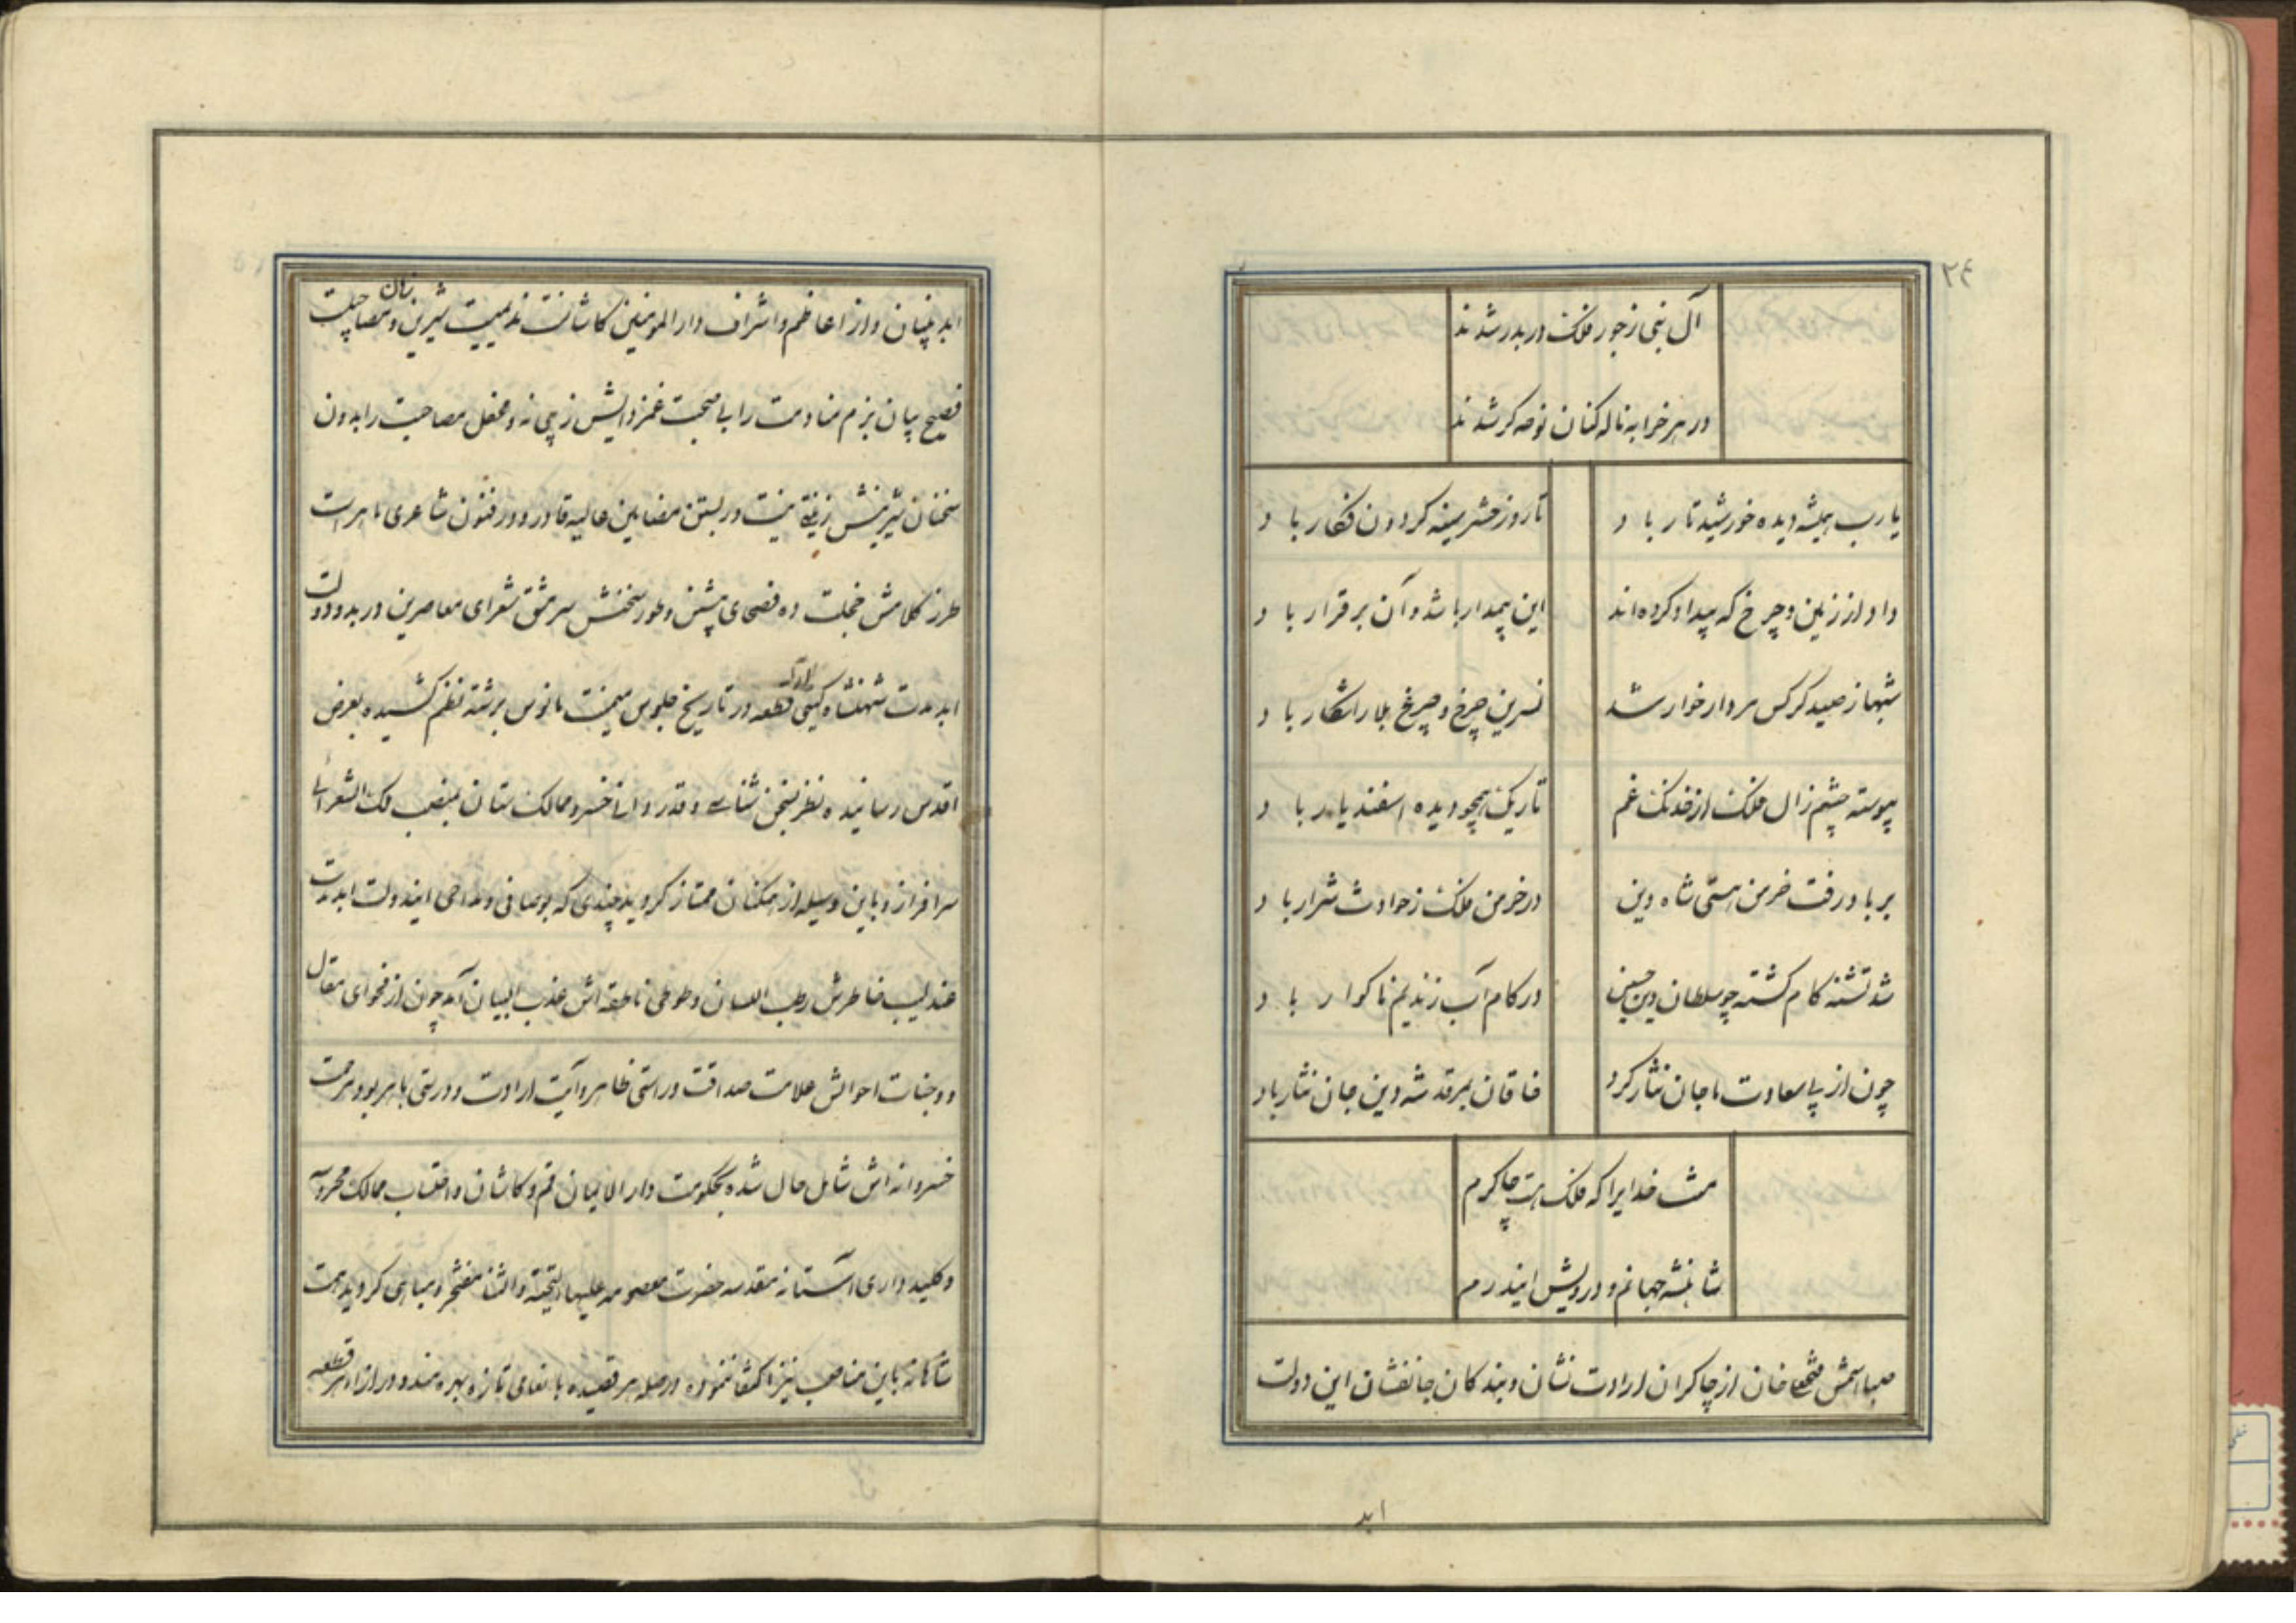 ٢٤
آل نبی ز جور فلک در بدر شدند
در هر خرابه ناله کنان نوحه کر شدند
یا رب همیشه دیده خورشید تار باد
تا روز حشر سینه کردون فکار باد
داد از زمین و چرخ که بیداد کرده اند
این بیمدار باشد و آن بر قرار باد
شهباز صید کرکس مردار خوار شد
نسرین چرخ و چرغ بلا را شکار باد
پیوسته چشم زال فلک از خدنک غم
تاریک همچو دیده اسفندیار باد
بر باد رفت خرمن هستی شاه دین
در خرمن فلک ز حوادث شرار باد
شد تشنه کام کشته چو سلطان دین حسین
در کام آب زندیم ناکوار باد
چون از پی سعادت ما جان نثار کرد
خاقان بمرقد شه دین جان نثار باد
منت خدایرا که فلک هست چاکرم
شاهنشه جهانم و درویش ایندرم
صبا اسمش فتحعلیخان از چاکران ارادت نشان و بندکان جانفشان این دولت
ابد
ابد بنیان و از اعاظم و اشراف دار المومنین کاشانست ندیمیست شیرین زبان و مصاحبیست
فصیح بیان بزم منادمت را بی صحبت غمزدایش زیبی نه و محفل مصاحبت را بدون
سخنان شیرینش زینتی نیست در بستن مضامین عالیه قادر و در فنون شاعری ماهر است
طرز کلامش خجلت ده فصحای پیشین و طور سخنش سرمشق شعرای معاصرین در بدو دولت
ابد مدت شهنشاه کیتی قطعه در تاریخ جلوس میمنت مانوس برشته نظم کشیده بعرض
اقدس رسانیده نظر بسخن شناسی و قدر دانی خسرو ممالک ستان بمنصب ملک الشعرائی
سرافراز و باین وسیله از همکنان ممتاز کردید چندی که بوصافی و مداحی ایندولت ابد مدت
عندلیب خاطرش رطب اللسان و طوطی ناطقه اش عذب البیان آمد چون از فحوای مقال
و وجنات احوالش علامت صداقت و راستی ظاهر و آیت ارادت و درستی باهر بود مرحمت
خسروانه اش شامل حال شده بحکومت دار الایمان قم و کاشان و احتساب ممالک محروسه
و کلید داری آستانه مقدسه حضرت معصومه علیها التحیة و الثنا مفتخر و مباهی کردید همت
شاهانه باین مناصب نیز اکتفا ننموده در صله هر قصیده بانعامی تازه بهره مند و در ازاء هر قطعه